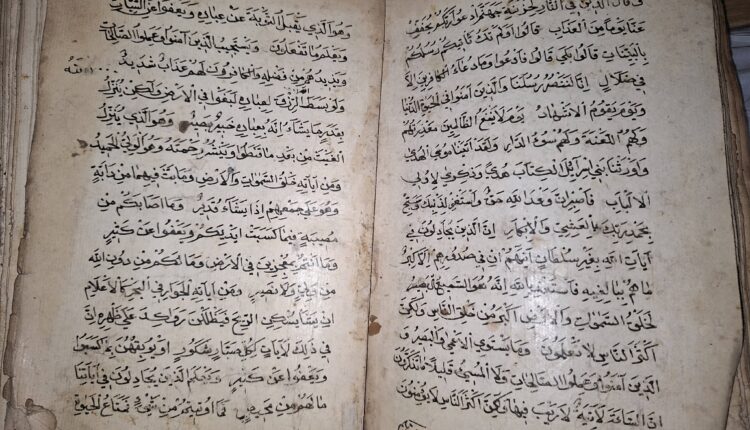 وقال الذين في النار لخزنة جهنم ادعوا ربكم يخفف
عنا يوما من العذاب قالوا اولم تك تأتيكم رسلكم
بالبينات قالوا بلى قالوا فادعوا وما دعاء الكافرين الا
في ضلال انا لننصر رسلنا والذين آمنوا في الحيوة الدنيا
ويوم يقوم الاشهاد يوم لا ينفع الظالمين معذرتهم
ولهم اللعنة ولهم سوء الدار ولقد آتينا موسى الهدى
واورثنا بني اسرائيل الكتاب هدى وذكرى لاولي
الالباب فاصبر ان وعد الله حق واستغفر لذنبك وسبح
بحمد ربك بالعشي والابكار ان الذين يجادلون في
آيات الله بغير سلطان اتاهم ان في صدورهم الا كبر
ما هم ببالغيه فاستعذ بالله انه هو السميع البصير
لخلق السموات والارض اكبر من خلق الناس ولكن
اكثر الناس لا يعلمون وما يستوي الاعمى والبصير و
الذين آمنوا وعملوا الصالحات ولا المسيئ قليلا ما تتذكرون
ان الساعة لآتية لا ريب فيها ولكن اكثر الناس لا يؤمنون
وهو الذي يقبل التوبة عن عباده ويعفو عن السيئات
ويعلم ما تفعلون ويستجيب الذين آمنوا وعملوا الصالحات
ويزيدهم من فضله والكافرون لهم عذاب شديد
الله
ولو بسط الرزق لعباده لبغوا في الارض ولكن ينزل
بقدر ما يشاء انه بعباده خبير بصير وهو الذي ينزل
الغيث من بعد ما قنطوا وينشر رحمته وهو الولي الحميد
ومن آياته خلق السموات والارض وما بث فيهما من دابة
وهو على جمعهم اذا يشاء قدير وما اصابكم من
مصيبة فبما كسبت ايديكم ويعفوا عن كثير
وما انتم بمعجزين في الارض وما لكم من دون الله
من ولي ولا نصير ومن آياته الجوار في البحر كالاعلام
ان يشأ يسكن الريح فيظللن رواكد على ظهره ان
في ذلك لآيات لكل صبار شكور او يوبقهن بما كسبوا
ويعفوا عن كثير ويعلم الذين يجادلون في آياتنا
ما لهم من محيص فما اوتيتم من شيء فمتاع الحيوة